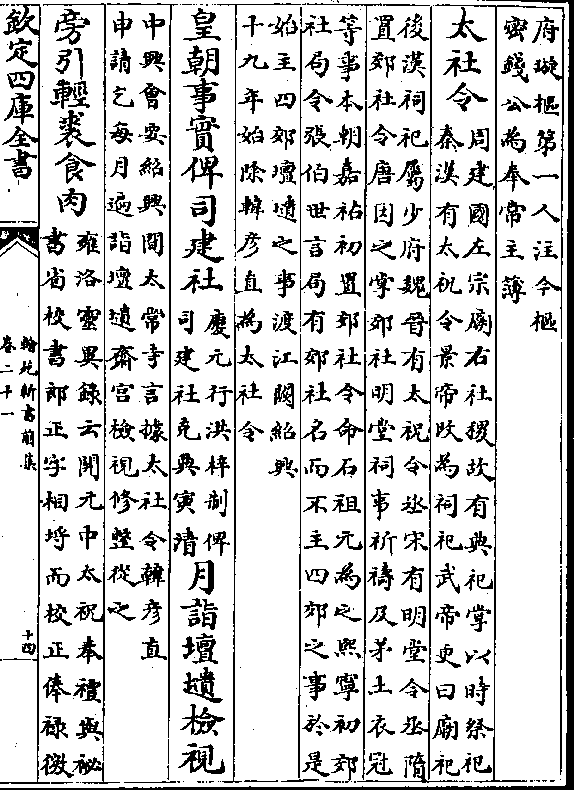 府璇樞第一人注今樞
密錢公為奉常主薄
太社令
周建國左宗廟右社稷故有典祀掌以時祭祀
秦漢有太祝令景帝改為祠祀武帝更曰廟祀
後漢祠祀屬少府魏晉有太祝令丞宋有明堂令丞隋
置郊社令唐因之掌郊社明堂祠事祈禱及茅土衣冠
等事本朝嘉祐初置郊社令命石祖元為之熙寧初郊
社局令張伯世言局有郊社名而不主四郊之事於是
始主四郊壇壝之事渡江闕紹興
十九年始除韓彥直為太社令
皇朝事實俾司建社
慶元行洪梓制俾
司建社克典寅清
月詣壇壝檢視
中興會要紹興間太常寺言據太社令韓彥直
申請乞每月遍詣壇壝齋宮檢視修整從之
旁引輕裘食肉
雍洛靈異錄云開元中太祝奉禮與秘
書省校書郎正字相埒而校正俸祿微
欽定四庫全書
翰苑新書前集
卷二十一
十四